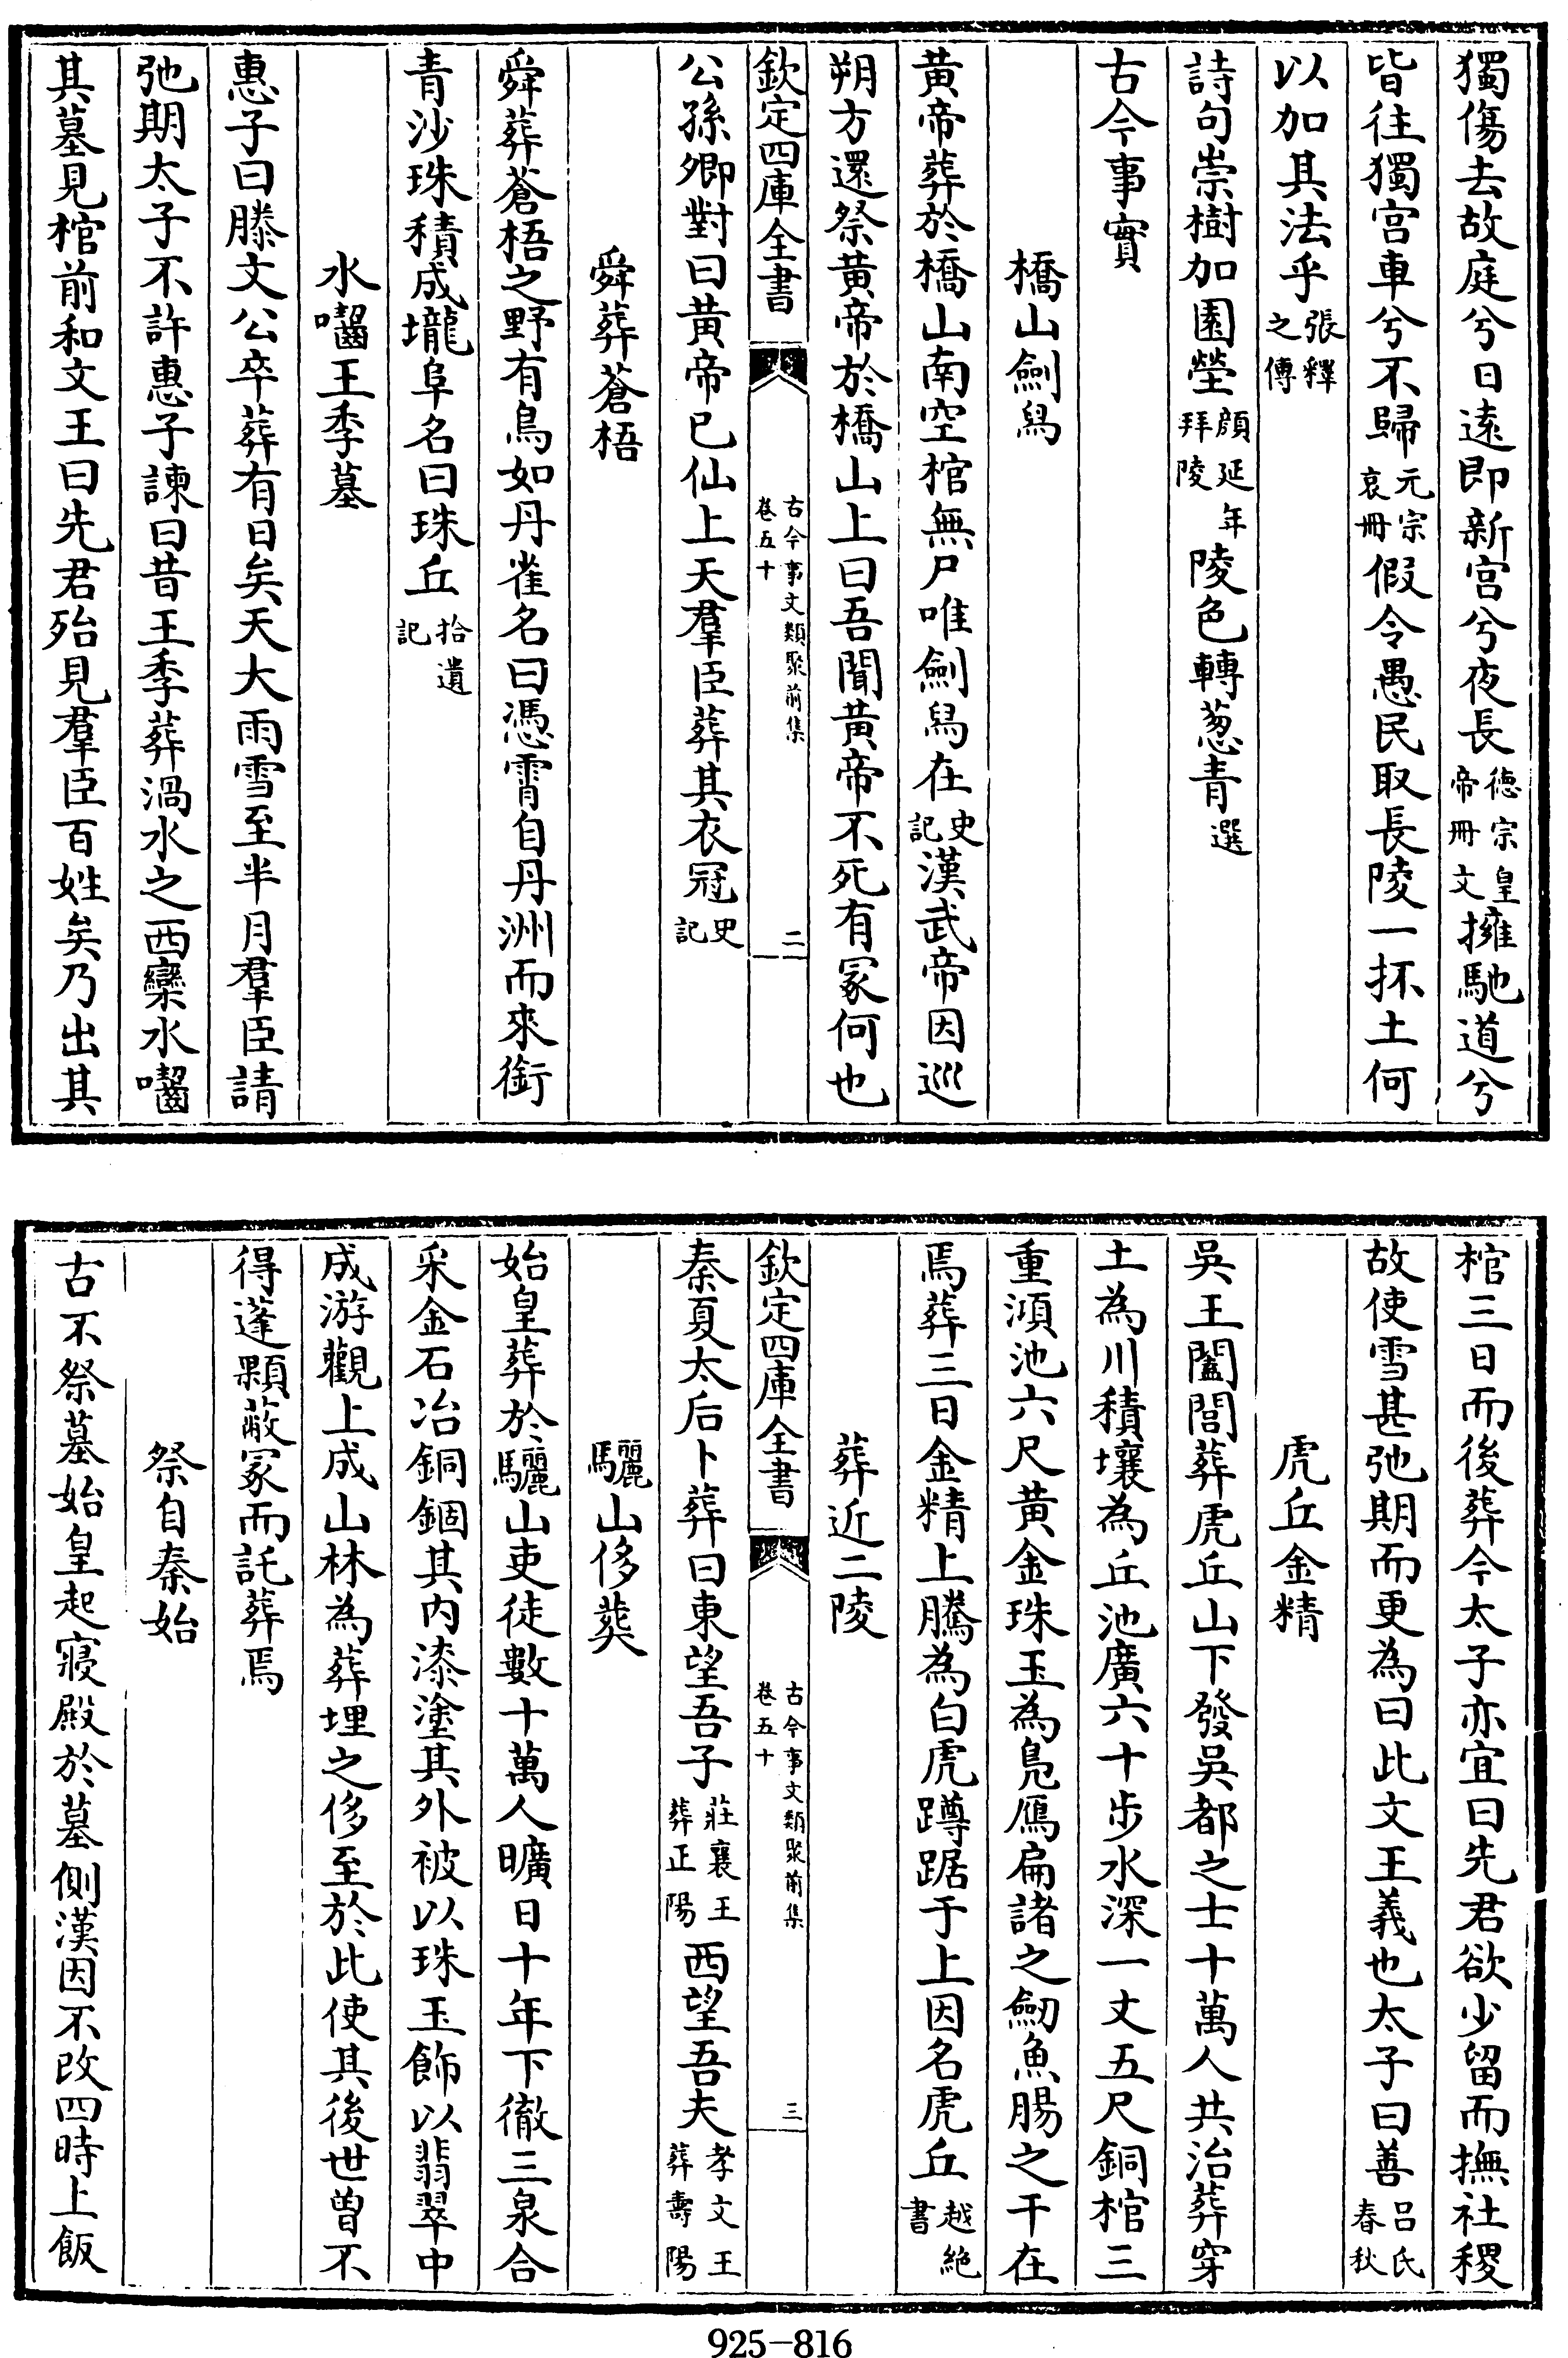 獨傷去故庭兮日遠即新宫兮夜長德宗皇帝冊文擁馳道兮
皆往獨宫車兮不歸元宗哀冊假令愚民取長陵一抔土何
以加其法乎張釋之傳
詩句崇樹加園塋顔延年拜陵陵色轉葱青選
古今事實
橋山劍舄
黄帝葬於橋山南空棺無尸唯劍舄在史記漢武帝因巡
朔方還祭黄帝於橋山上曰吾聞黄帝不死有冢何也
欽定四庫全書
古今事文類聚前集
卷五十
二
公孫卿對曰黄帝已仙上天羣臣葬其衣冠史記
舜葬蒼梧
舜葬蒼梧之野有鳥如丹雀名曰憑霄自丹洲而來銜
青沙珠積成壠阜名曰珠丘拾遺記
水囓王季墓
惠子曰滕文公卒葬有日矣天大雨雪至半月羣臣請
弛期太子不許惠子諫曰昔王季葬渦水之西欒水囓
其墓見棺前和文王曰先君殆見羣臣百姓矣乃出其
棺三日而後葬今太子亦宜曰先君欲少留而撫社稷
故使雪甚弛期而更為曰此文王義也太子曰善吕氏春秋
虎丘金精
吳王闔閭葬虎丘山下發吳都之士十萬人共治葬穿
土為川積壤為丘池廣六十步水深一丈五尺銅棺三
重澒池六尺黄金珠玉為鳬鴈扁諸之劒魚腸之干在
焉葬三日金精上騰為白虎蹲踞于上因名虎丘越絶書
葬近二陵
欽定四庫全書
古今事文類聚前集
卷五十
三
秦夏太后卜葬曰東望吾子莊襄王葬正陽西望吾夫孝文王葬壽陽
驪山侈葬
始皇葬於驪山吏徒數十萬人曠日十年下徹三泉合
采金石冶銅錮其内漆塗其外被以珠玉飾以翡翠中
成游觀上成山林為葬埋之侈至於此使其後世曾不
得蓬顆蔽冢而託葬焉
祭自秦始
古不祭墓始皇起寢殿於墓側漢因不改四時上飯
925-816